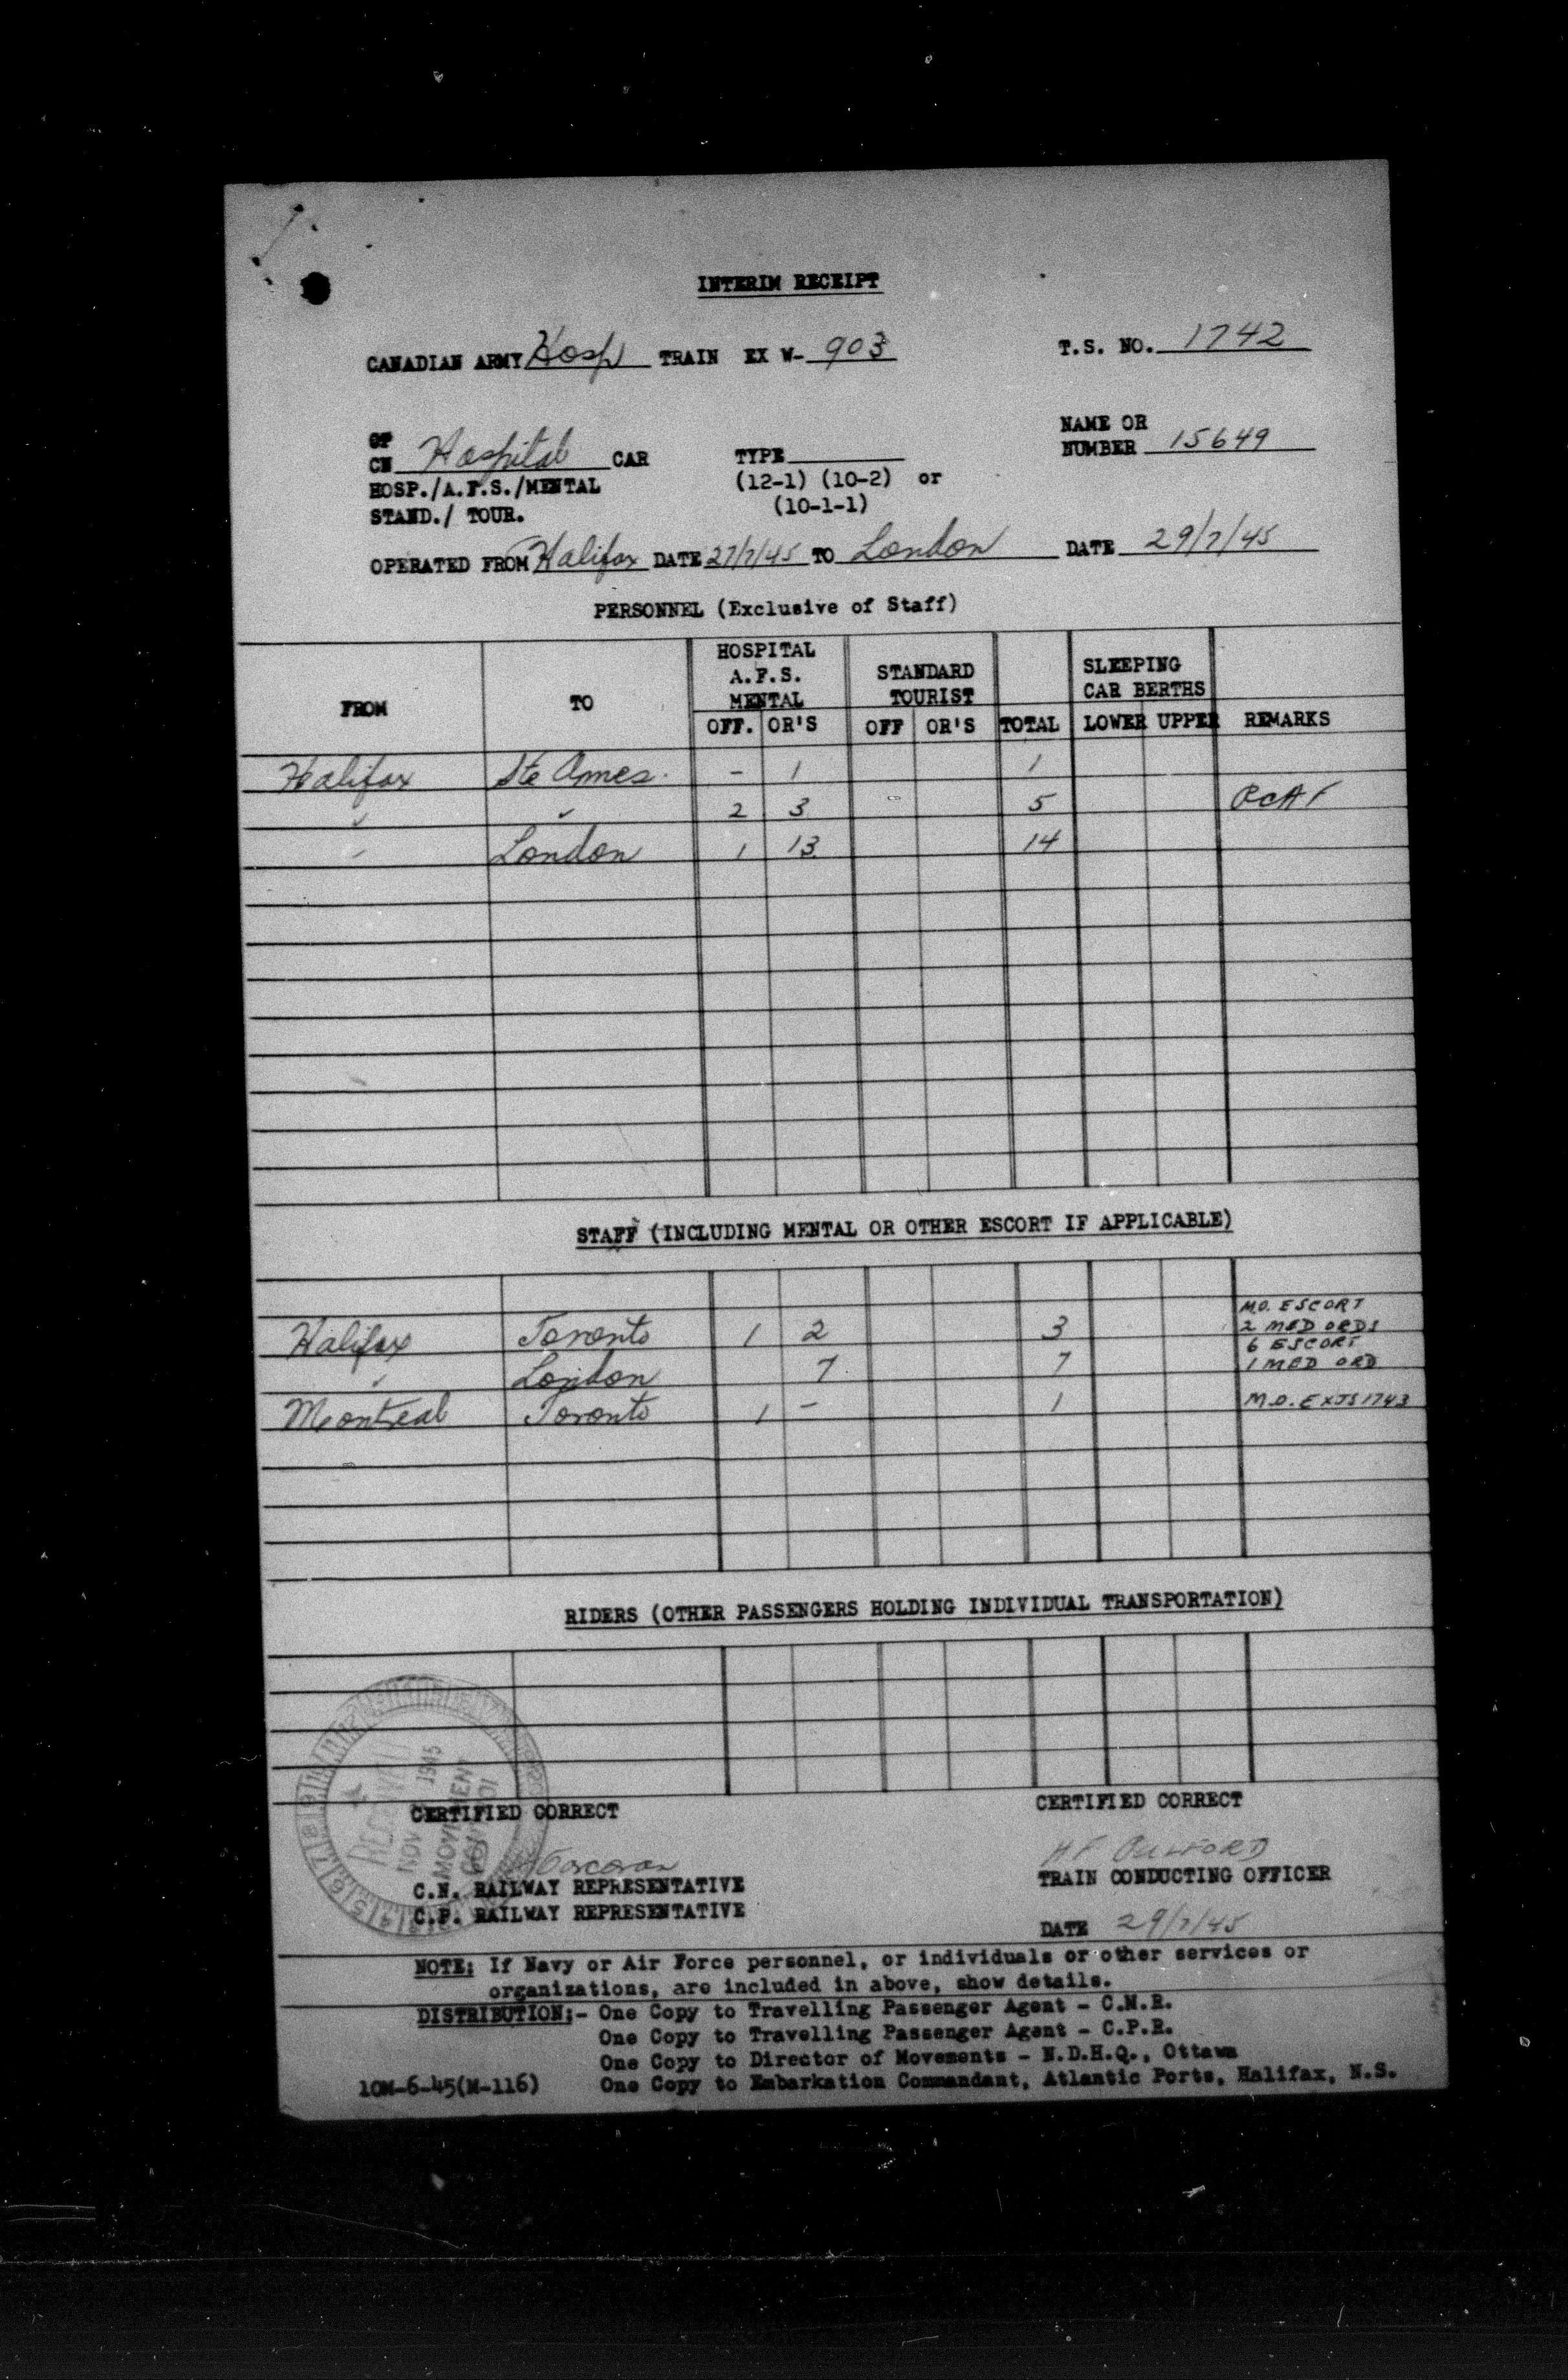 INTERIM RECEIPT
CANADIAN ARMY Hosp TRAIN EX W- 903 T.S. NO. 1742
CP
CN Hospital CAR TYPE NAME OR NUMBER 15649
HOSP./A.F.S./MENTAL (12-1) (10-2) or
STAND./ TOUR. (10-1-1)
OPERATED FROM Halifax DATE 27/7/45 TO London DATE 29/7/45
PERSONNEL (Exclusive of Staff)
FROM TO HOSPITAL A.F.S. MENTAL STANDARD TOURIST SLEEPING CAR BERTHS
OFF. OR'S OFF OR'S TOTAL LOWER UPPER REMARKS
Halifax Ste Annes. - 1 1
" " 2 3 5 RCAF
" London 1 13 14
STAFF (INCLUDING MENTAL OR OTHER ESCORT IF APPLICABLE)
Halifax Toronto 1 2 3 M.O. ESCORT 2 MED ORDS
" London 7 7 6 ESCORT 1 MED ORD
Montreal Toronto 1 - 1 M.O. EXTS 1743
RIDERS (OTHER PASSENGERS HOLDING INDIVIDUAL TRANSPORTATION)
NOV 1945
CERTIFIED CORRECT CERTIFIED CORRECT
Corcoran
C.N. RAILWAY REPRESENTATIVE TRAIN CONDUCTING OFFICER
C.P. RAILWAY REPRESENTATIVE
DATE 29/7/45
NOTE: If Navy or Air Force personnel, or individuals or other services or
organizations, are included in above, show details.
DISTRIBUTION:- One Copy to Travelling Passenger Agent - C.N.R.
One Copy to Travelling Passenger Agent - C.P.R.
One Copy to Director of Movements - N.D.H.Q., Ottawa
10M-6-45(M-116) One Copy to Embarkation Commandant, Atlantic Ports, Halifax, N.S.